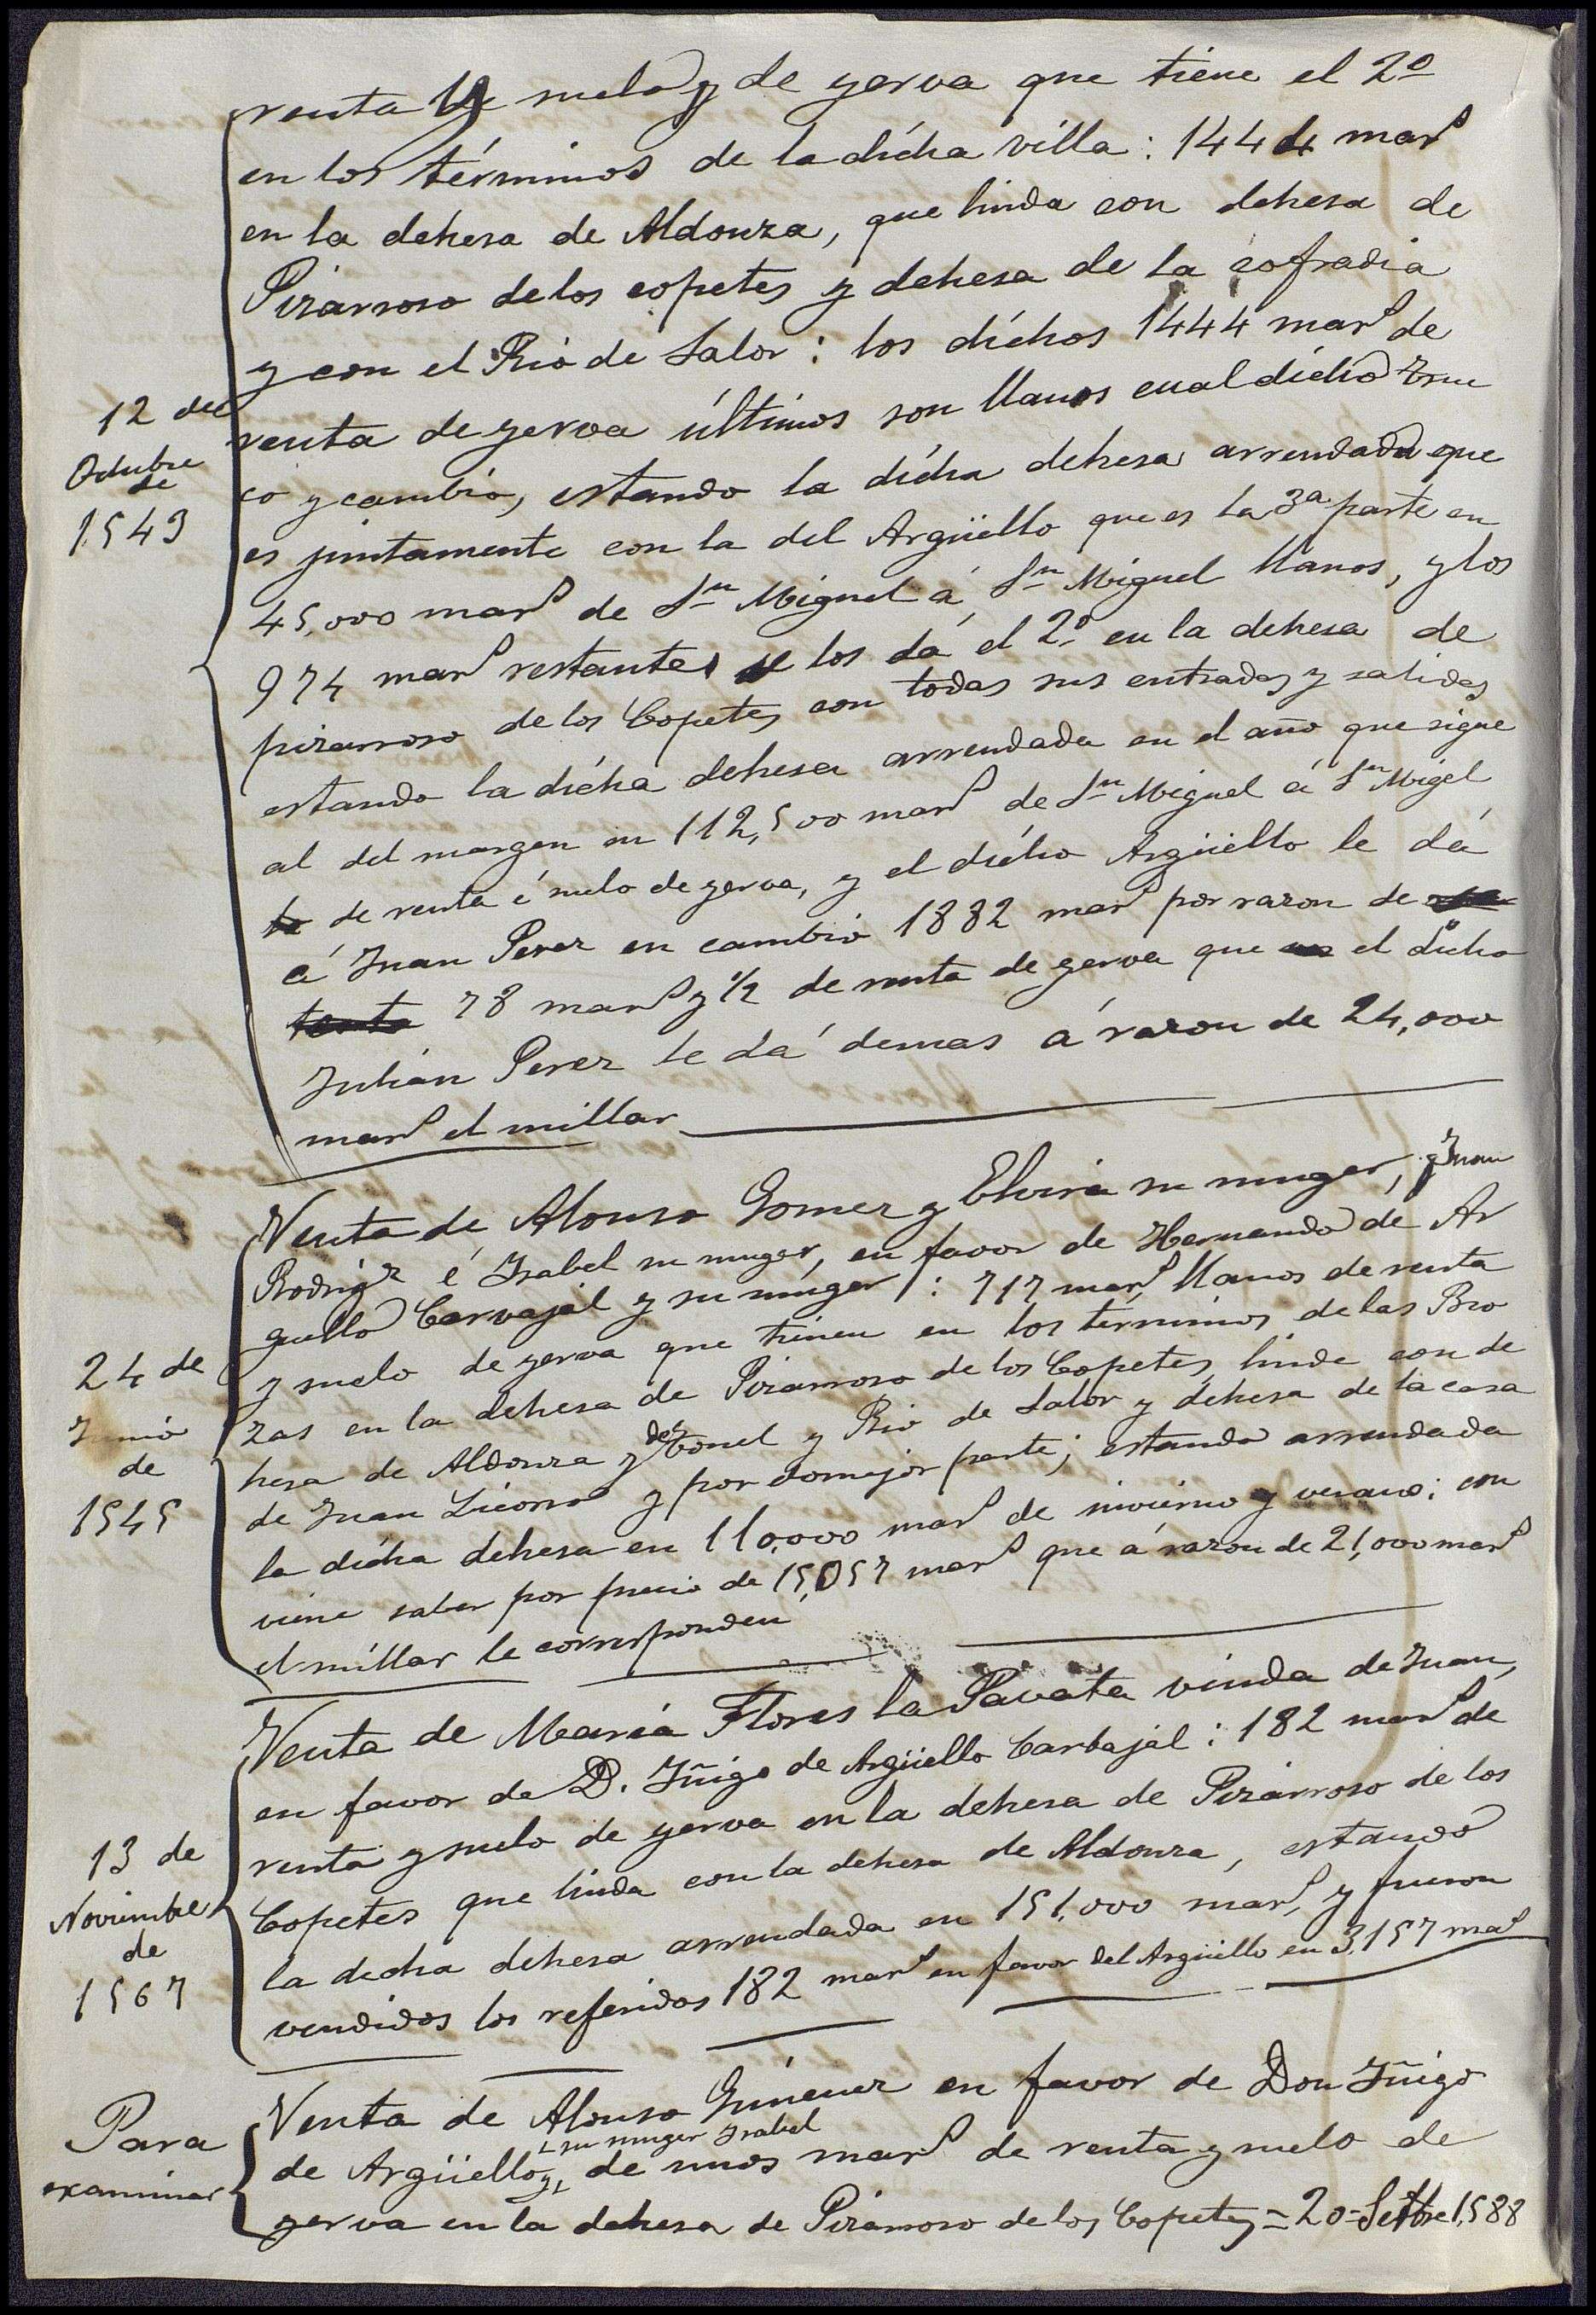 renta y suelo y de yerva que tiene el 2º
en los términos de la dicha villa: 1444 marˢ
en la dehesa de Aldonza, que linda con dehesa de
Pizarroso de los copetes y dehesa de la cofradia
y con el Rio de Salor: los dichos 1444 marˢ de
12 de
Octubre
de
1543
renta de yerva últimos son llanos en al dicho true
co y cambio, estando la dicha dehesa arrendada que
es juntamente con la del Argüello que es la 3ª parte en
45,000 marˢ de Sⁿ Miguel á Sⁿ Miguel llanos, y los
974 marˢ restantes se los dá el 2º en la dehesa de
pizarroso de los Copetes con todas sus entradas y salidas
estando la dicha dehesa arrendada en el año que sigue
al del margen en 112,500 marˢ de Sⁿ Miguel á Sⁿ Migel
de renta é suelo de yerva, y el dicho Argüello le dá
á Juan Perez en cambio 1882 marˢ por razon de
78 marˢ y 1/2 de renta de yerva que el dicho
Julián Perez le dá demas á razon de 24,000
marˢ el millar
Venta de Alonso Gomez y Elvira su muger, y Juan
Rodrigz é Isabel su muger, en favor de Hernando de Ar
guello Carvajal y su muger: 717 marˢ llanos de renta
24 de
Junio
de
1545
y suelo de yerva que tienen en los terminos de las Bro
zas en la dehesa de Pizarroso de los Copetes, linde con de
hesa de Aldonza y del Conel y Rio de Salor y dehesa de la casa
de Juan Licorno y por comejor parte; estando arrendada
la dicha dehesa en 110,000 marˢ de invierno y verano; con
viene saber por precio de 15,057 marˢ que á razon de 21,000 marˢ
el millar le corresponden
Venta de María Flores la Pavata viuda de Juan,
en favor de D. Iñigo de Argüello Carbajal: 182 marˢ de
13 de
Noviembre
de
1567
renta y suelo de yerva en la dehesa de Pizarroso de los
Copetes que linda con la dehesa de Aldonza, estando
la dicha dehesa arrendada en 151,000 marˢ, y fueron
vendidos los referidos 182 marˢ en favor del Argüello en 3,157 maˢ
Para
examinar
Venta de Alonso Gimenez en favor de Don Iñigo
de Argüello y su muger Isabel, de unos marˢ de renta y suelo de
yerva en la dehesa de Pizarroso de los Copetes = 20 Settbre 1588